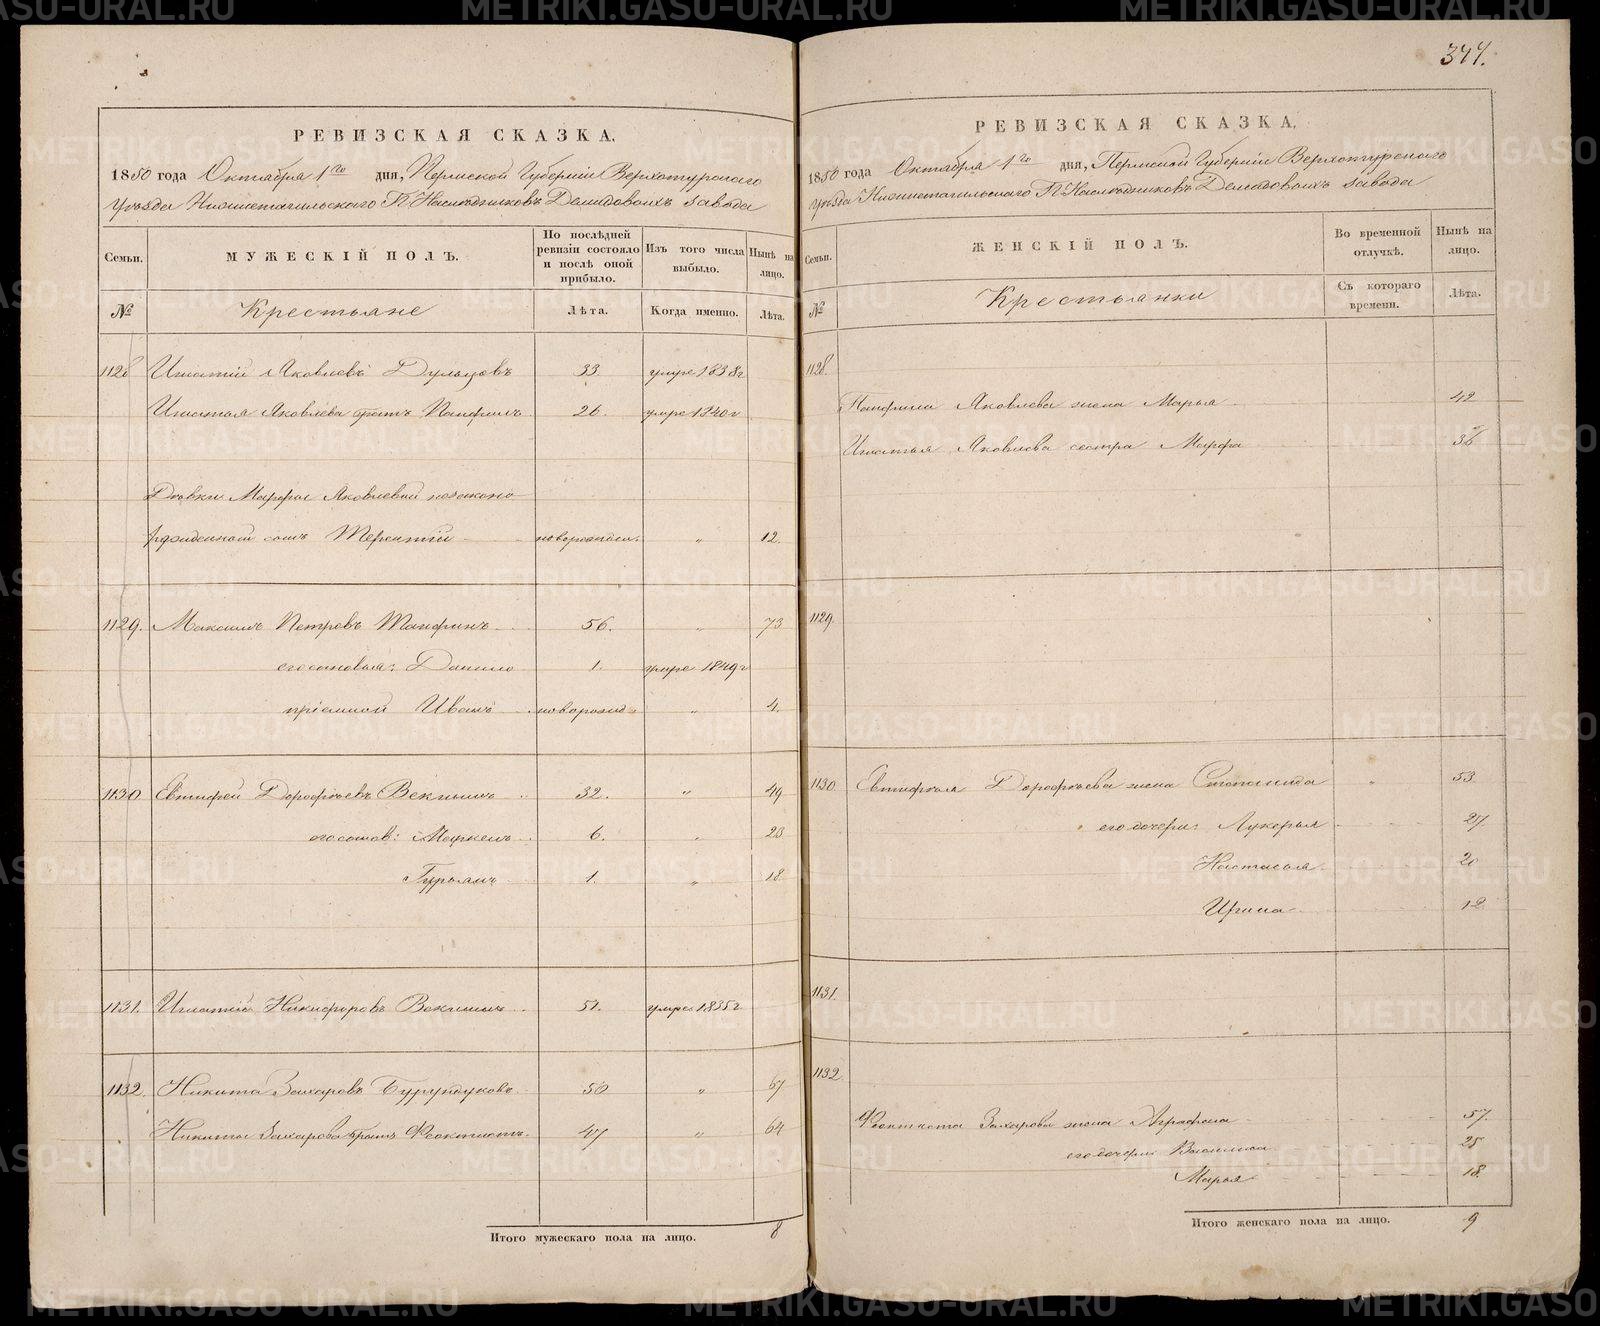 344.
РЕВИЗСКАЯ СКАЗКА.
1850 года Октября 1го дня, Пермской Губерніи Верхотурскаго
Уѣзда Нижнетагильскаго Г.Г. Наслѣдниковъ Демидовыхъ завода
Семьи.
МУЖЕСКІЙ ПОЛЪ.
По послѣдней ревизіи состояло и послѣ оной прибыло.
Изъ того числа выбыло.
Нынѣ на лицо.
№
Крестьяне
Лѣта.
Когда именно.
Лѣта.
1128 Игнатій Яковлевъ 33 умре 1838г
Игнатья Яковлева братъ Панфилъ 26. умре 1840г
Дѣвки Марфы Яковлевой незаконно
рожденной сынъ Терентій новорожден. " 12.
1129. Максимъ Петровъ 56. " 73
его сыновья: Данило 1. умре 1849г
пріемной Иванъ новорожд. " 4.
1130 Евтифей Дорофѣевъ Векшинъ 32. " 49
его сынов: Маркелъ 6. " 23
Гурьянъ 1. " 18.
1131. Игнатій Никифоровъ Векшинъ 51. умре 1835г
1132. Никита Захаровъ Бурундуковъ 50 " 67
Никиты Захарова братъ Феоктистъ 47 " 64
Итого мужескаго пола на лицо. 8
РЕВИЗСКАЯ СКАЗКА.
1850 года Октября 1го дня, Пермской Губерніи Верхотурскаго
Уѣзда Нижнетагильскаго Г.Г. Наслѣдниковъ Демидовыхъ завода
Семьи.
ЖЕНСКІЙ ПОЛЪ.
Во временной отлучкѣ.
Нынѣ на лицо.
№
Крестьянки
Съ котораго времени.
Лѣта.
1128.
Панфила Яковлева жена Марья 42
Игнатья Яковлева сестра Марфа 36
1129.
1130. Евтифѣя Дорофѣева жена Степанида " 53
его дочери: Лукерья 27.
Настасья 20
Ирина 12.
1131.
1132.
Феоктиста Захарова жена Аграфена 57.
его дочери: Василиса 25
Марья 18.
Итого женскаго пола на лицо. 9
METRIKI.GASO-URAL.RU